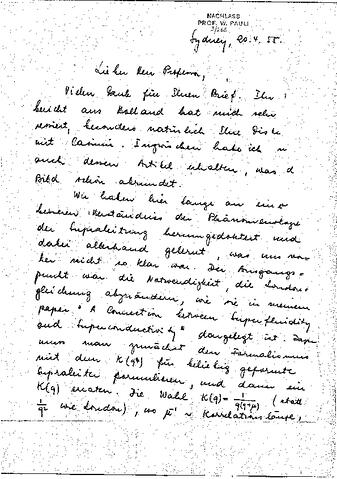 NACHLASS
PROF. W. PAULI
Sydney, 20.4.55.
Lieber Herr Professor,
Vielen Dank für Ihren Brief. Ihr
bericht aus Holland hat mich sehr
besonders natürlich Ihre Disku
mit Casimir. Inzwischen habe ich
auch dessen Artikel erhalten, was d
Bild schön abrundet.
Wir haben hier lange an einem
besseren Verständnis der Phänomenologie
der Supraleitung herumgedoktert und
dabei allerhand gelernt, was uns vor
her nicht so klar war. Der Ausgangs-
punkt war die Notwendigkeit, die London-
gleichung abzuändern, wie sie in meinem
paper "A Connection between Superfluidity
and Superconductivity" dargelegt ist.
muss man zunächst den Formalismus
mit dem K(q) für beliebig geformte
Supraleiter formulieren, und dann ein
K(q) erraten. Die Wahl K(q) = (statt
wie London), wo μ⁻¹ ~ Korrelationslänge,